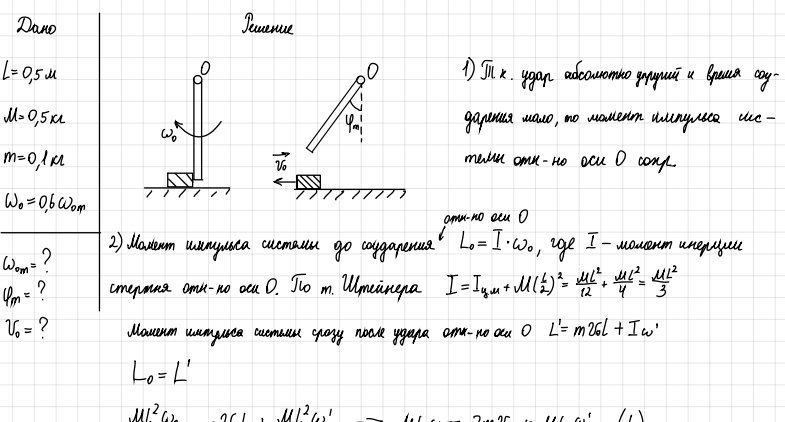 Дано
Решение
L = 0,5 м
M = 0,5 кг
m = 0,1 кг
ω₀ = 0,6 ω₀m
ω₀m = ?
φm = ?
v₀ = ?
O
ω₀
O
φm
v₀
1) Т.к. удар абсолютно упругий и время соу-
дарения мало, то момент импульса сис-
темы отн-но оси O сохр.
отн-но оси O
2) Момент импульса системы до соударения L₀ = I·ω₀, где I – момент инерции
стержня отн-но оси O. По т. Штейнера I = Iц.м + M(L/2)² = ML²/12 + ML²/4 = ML²/3
Момент импульса системы сразу после удара отн-но оси O L' = mv₀L + Iω'
L₀ = L'